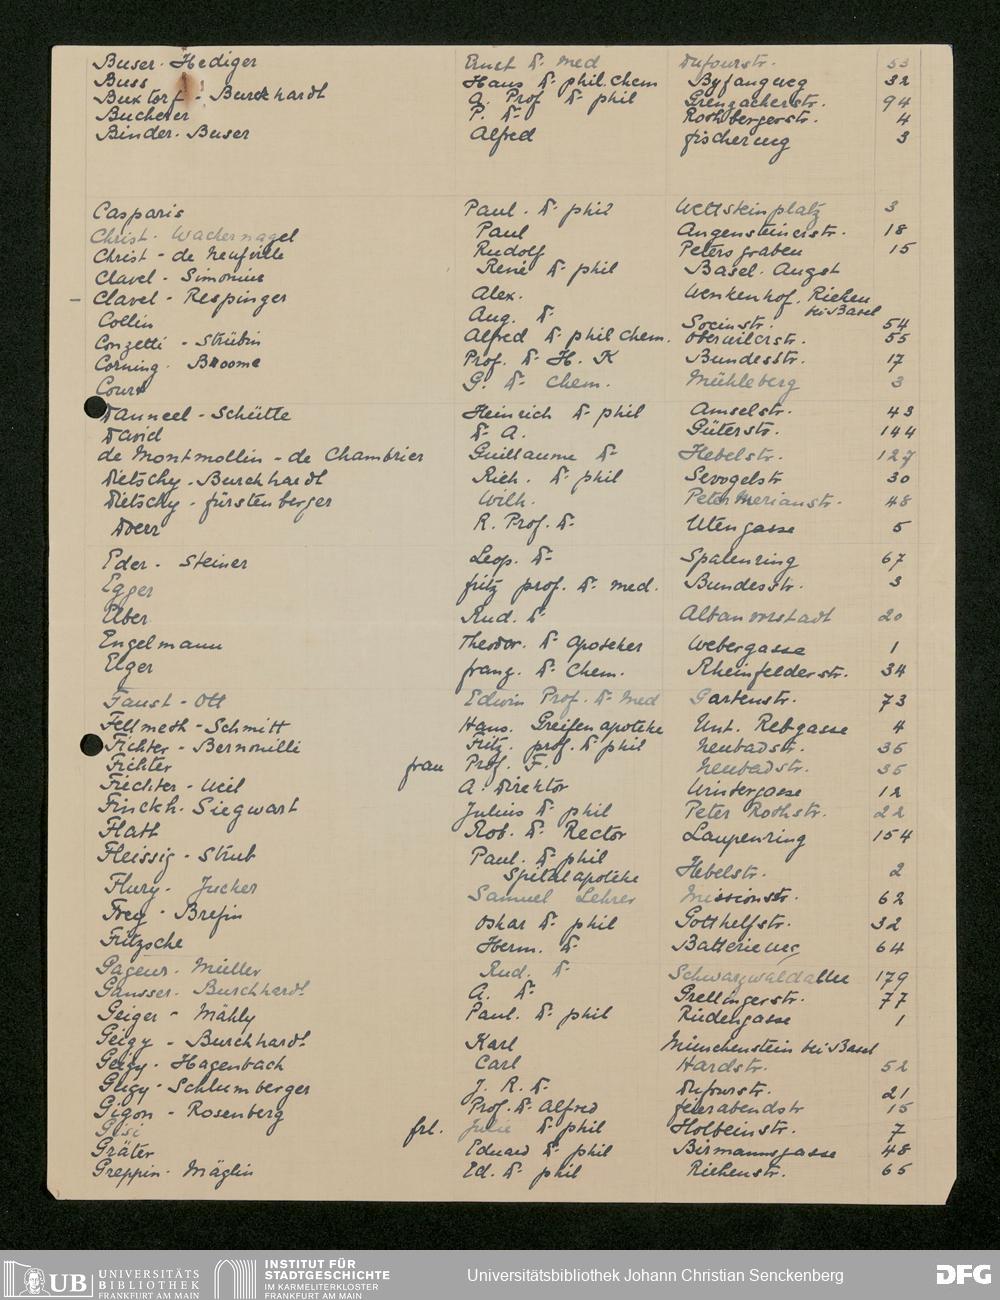 Buser-Hediger Ernst Dr. med Dufourstr. 53
Buss Hans Dr. phil. chem Byfangweg 32
Buxtorf-Burckhardt A. Prof Dr. phil Grenzacherstr. 94
Bucherer P. Dr. Rothbergerstr. 4
Binder-Buser Alfred Fischerweg 3
Casparis Paul. Dr. phil Wettsteinplatz 3
Christ-Wackernagel Paul Angensteinerstr. 18
Christ-de Neufville Rudolf Petersgraben 15
Clavel-Simonius René Dr. phil Basel-Augst
Clavel-Respinger Alex. Wenkenhof, Riehen bei Basel
Collin Aug. Dr. Socinstr. 54
Conzetti-Strübin Alfred Dr. phil chem. Oberwilerstr. 55
Corning-Broome Prof. Dr. H. K Bundesstr. 17
Court G. Dr. chem. Mühleberg 3
Danneel-Schütte Heinrich Dr. phil Amselstr. 43
David Dr. A. Güterstr. 144
de Montmollin-de Chambrier Guillaume Dr. Hebelstr. 127
Dietschy-Burckhardt Rich. Dr. phil Sevogelstr 30
Dietschy-Fürstenberger Wilh. Peter Merianstr. 48
Doerr R. Prof. Dr. Utengasse 5
Eder-Steiner Leop. Dr. Spalenring 67
Egger Fritz prof. Dr. med. Bundesstr. 3
Rud. Dr. Albanvorstadt 20
Engelmann Theodor. Dr. Apotheker Webergasse 1
Elger Franz. Dr. Chem. Rheinfelderstr. 34
Faust-Ott Edwin Prof. Dr. Med Gartenstr. 73
Fellmeth-Schmitt Hans. Greifenapotheke Unt. Rebgasse 4
Fichter-Bernouilli Fritz. prof. Dr. phil Neubadstr. 35
Fichter frau Prof. F. Neubadstr. 35
Fiechter-Weil A. Direktor Wintergasse 12
Finckh-Siegwart Julius Dr. phil Peter Rothstr. 22
Flatt Rob. Dr. Rector Laupenring 154
Fleissig-Strub Paul. Dr. phil Spitalapotheke Hebelstr. 2
Flury-Jucker Samuel Lehrer Missionsstr. 62
Frey-Brefin Oskar Dr. phil Gotthelfstr. 32
Fritzsche Herm. Dr. Batterieweg 64
Müller Rud. Dr. Schwarzwaldallee 179
Gansser-Burckhardt A. Dr. Grellingerstr. 77
Geiger-Mähly Paul. Dr. phil Rüdengasse 1
Geigy-Burckhardt Karl Münchenstein bei Basel
Geigy-Hagenbach Carl Hardstr. 52
Geigy-Schlumberger J. R. Dr. Dufourstr. 21
Gigon-Rosenberg Prof. Dr. Alfred Feierabendstr 15
Gisi frl. Julie Dr. phil Holbeinstr. 7
Gräter Eduard Dr. phil Birmannsgasse 48
Greppin-Mäglin Ed. Dr. phil Riehenstr. 65
UB UNIVERSITÄTS
BIBLIOTHEK
FRANKFURT AM MAIN
INSTITUT FÜR
STADTGESCHICHTE
IM KARMELITERKLOSTER
FRANKFURT AM MAIN
Universitätsbibliothek Johann Christian Senckenberg
DFG